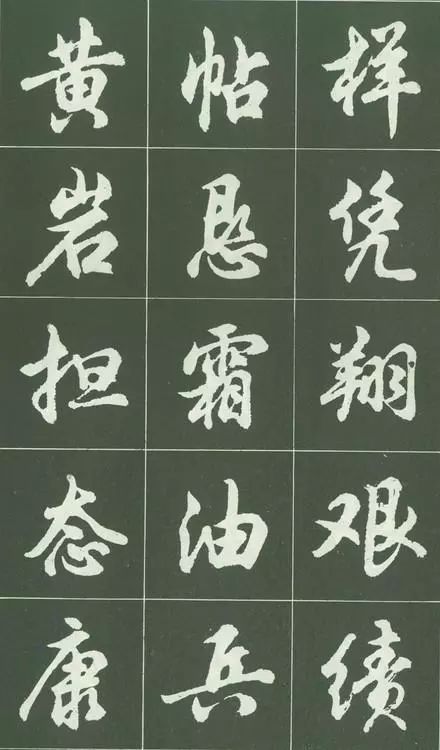 样凭翔艰绩
帖悬霜油兵
黄岩担态康